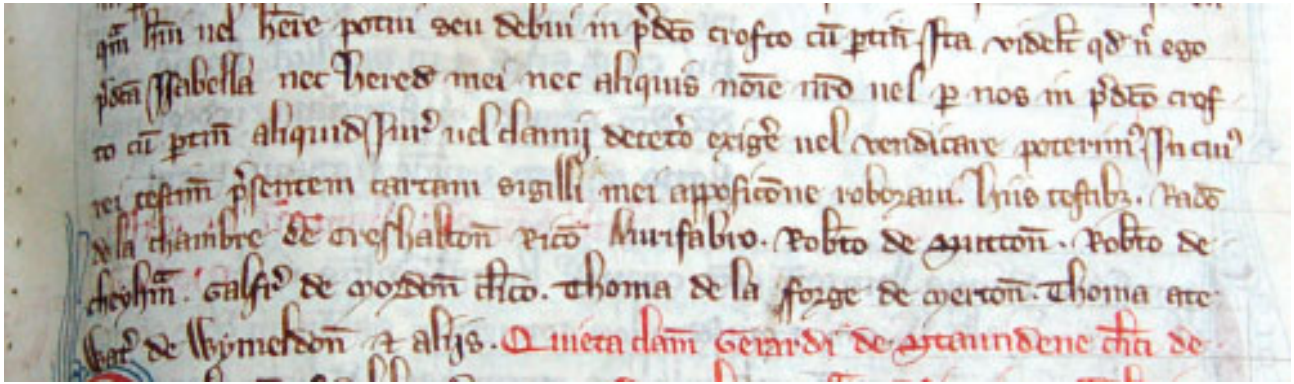 qm̄ hui vel h̄ere potui seu debui in p̄dc̄o crofto cū ptiñ Ita videlt̄ qd̄ n̄ ego
p̄dc̄a Isabella nec hered̄ mei nec aliquis nōie nr̄o vel p nos in p̄dc̄o crof
to cū ptiñ aliquid Iur̉ vel clamij decet̉o exig̉e vel vendicare poterim̉ In cuỉ
rei testim̄ p̉sentem cartam sigilli mei apposic̄one roboraui. Hiis testibꝫ. Rad̄o
de la chambre de Creshaltoñ Ric̄o Aurifabro. Rob̄to de Mittoñ. Rob̄to de
heyh̄m. Galfr̉ de Mordoñ cl̄ico. Thoma de la fforge de Mertoñ. Thoma ate
Wat̉e de Wymeldoñ ⁊ alijs. Quieta clam̄ Gerardi de Staundene cl̄ici de